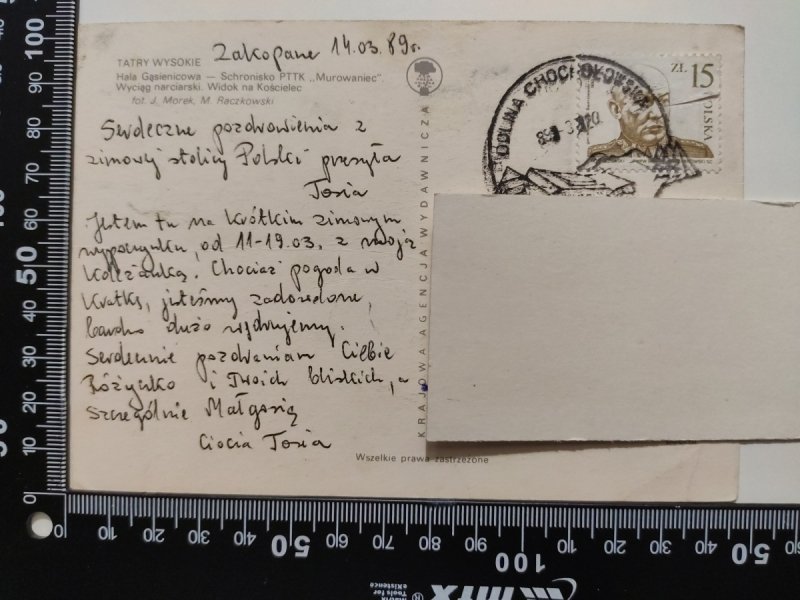 Zakopane 14.03.89r.
TATRY WYSOKIE
Hala Gąsienicowa — Schronisko PTTK „Murowaniec”
Wyciąg narciarski. Widok na Kościelec
fot. J. Morek, M. Raczkowski
Serdeczne pozdrowienia z
zimowej stolicy Polski przesyła
Tosia
Jestem tu na krótkim zimowym
wypoczynku, od 11-19.03. z moją
koleżanką. Chociaż pogoda w
kratkę, jesteśmy zadowolone,
bardzo dużo wędrujemy.
Serdecznie pozdrawiam Ciebie
Różyczko i Twoich bliskich, a
szczególnie Małgosię
Ciocia Tosia
KRAJOWA AGENCJA WYDAWNICZA
Wszelkie prawa zastrzeżone
DOLINA CHOCHOŁOWSKA
ZŁ 15
POLSKA
0 10 20 30 40 50 60 70 80 90 100
0 10 20 30 40 50 60 70 80 90 100 10 20 30 40 50
mtx
Tools for
eXistence